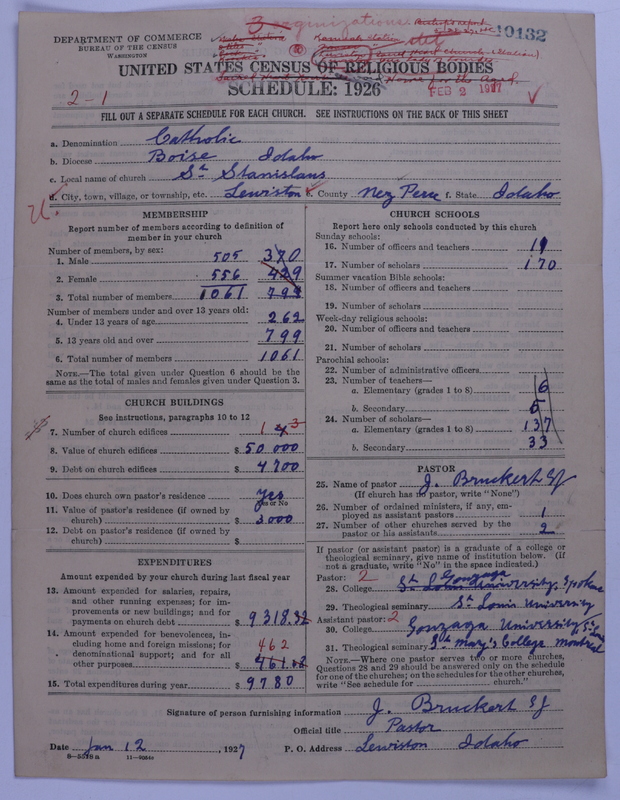 3 organizations.
DEPARTMENT OF COMMERCE
BUREAU OF THE CENSUS
WASHINGTON
10132
UNITED STATES CENSUS OF RELIGIOUS BODIES
SCHEDULE: 1926
2-1
FEB 2 1927
FILL OUT A SEPARATE SCHEDULE FOR EACH CHURCH. SEE INSTRUCTIONS ON THE BACK OF THIS SHEET
a. Denomination Catholic
b. Diocese Boise Idaho
c. Local name of church St Stanislaus
d. City, town, village, or township, etc. Lewiston e. County Nez Perce f. State Idaho
MEMBERSHIP
Report number of members according to definition of
member in your church
Number of members, by sex:
1. Male 505 370
2. Female 556 429
3. Total number of members 1061 799
Number of members under and over 13 years old:
4. Under 13 years of age 262
5. 13 years old and over 799
6. Total number of members 1061
NOTE.—The total given under Question 6 should be
same as the total of males and females given under Question 3.
CHURCH BUILDINGS
See instructions, paragraphs 10 to 12
7. Number of church edifices 1 3
8. Value of church edifices $ 50 000
9. Debt on church edifices $ 4700
10. Does church own pastor's residence Yes
Yes or No
11. Value of pastor's residence (if owned by
church) $ 3000
12. Debt on pastor's residence (if owned by
church) $
EXPENDITURES
Amount expended by your church during last fiscal year
13. Amount expended for salaries, repairs,
and other running expenses; for im-
provements or new buildings; and for
payments on church debt $ 9318.32
14. Amount expended for benevolences, in-
cluding home and foreign missions; for 462
denominational support; and for all
other purposes $ 461.
15. Total expenditures during year $ 9780
CHURCH SCHOOLS
Report here only schools conducted by this church
Sunday schools:
16. Number of officers and teachers 11
17. Number of scholars 170
Summer vacation Bible schools:
18. Number of officers and teachers
19. Number of scholars
Week-day religious schools:
20. Number of officers and teachers
21. Number of scholars
Parochial schools:
22. Number of administrative officers
23. Number of teachers—
a. Elementary (grades 1 to 8) 6
b. Secondary 5
24. Number of scholars—
a. Elementary (grades 1 to 8) 137
b. Secondary 33
PASTOR
25. Name of pastor J. Bruckert SJ
(If church has no pastor, write "None")
26. Number of ordained ministers, if any, em-
ployed as assistant pastors 1
27. Number of other churches served by the
pastor or his assistants 2
If pastor (or assistant pastor) is a graduate of a college or
theological seminary, give name of institution below. (If
not a graduate, write "No" in the space indicated.)
Pastor: 2 Gonzaga
28. College St Louis University, Spokane
29. Theological seminary St Louis University
Assistant pastor: 2
30. College Gonzaga University,
31. Theological seminary St Mary's College Montreal
NOTE.—Where one pastor serves two or more churches,
Questions 28 and 29 should be answered only on the schedule
for one of the churches; on the schedules for the other churches,
write "See schedule for church."
Signature of person furnishing information J. Bruckert SJ
Official title Pastor
Date Jan 12, 1927 P. O. Address Lewiston Idaho
8-5578a 11-9054a